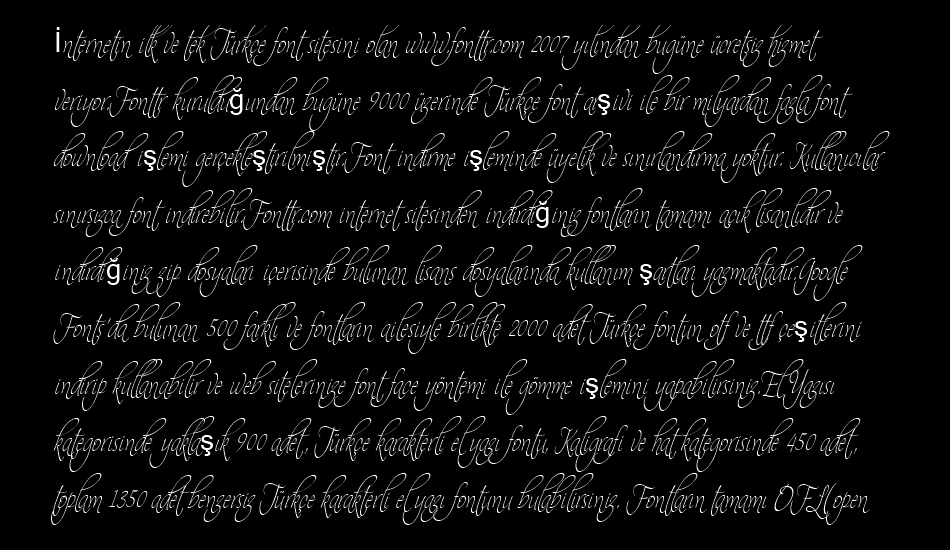 İnternetin ilk ve tek Türkçe font sitesini olan www.fonttr.com 2007 yılından bugüne ücretsiz hizmet
veriyor.Fonttr kurulduğundan bugüne 9000 üzerinde Türkçe font arşivi ile bir milyardan fazla font
download işlemi gerçekleştirilmiştir.Font indirme işleminde üyelik ve sınırlandırma yoktur. Kullanıcılar
sınırsızca font indirebilir.Fonttr.com internet sitesinden indirdiğiniz fontların tamamı açık lisanlıdır ve
indirdiğiniz zip dosyaları içerisinde bulunan lisans dosyalarında kullanım şartları yazmaktadır.Google
Fonts'da bulunan 500 farklı ve fontların ailesiyle birlikte 2000 adet Türkçe fontun otf ve ttf çeşitlerini
indirip kullanabilir ve web sitelerinize font face yöntemi ile gömme işlemini yapabilirsiniz.El Yazısı
kategorisinde yaklaşık 900 adet, Türkçe karakterli el yazı fontu, Kaligrafi ve hat kategorisinde 450 adet,
toplam 1350 adet benzersiz Türkçe karakterli el yazı fontunu bulabilirsiniz. Fontların tamamı OFL(open